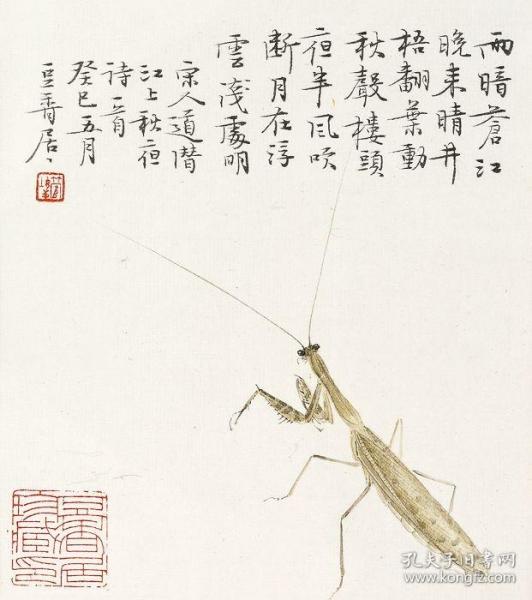 雨暗蒼江
晚未晴井
梧翻葉動
秋聲樓頭
夜半风吹
断月在浮
雲淺處明
宋人道潛
江上秋夜
詩一首
癸巳五月
豆香居
孔夫子旧书网
www.kongfz.com